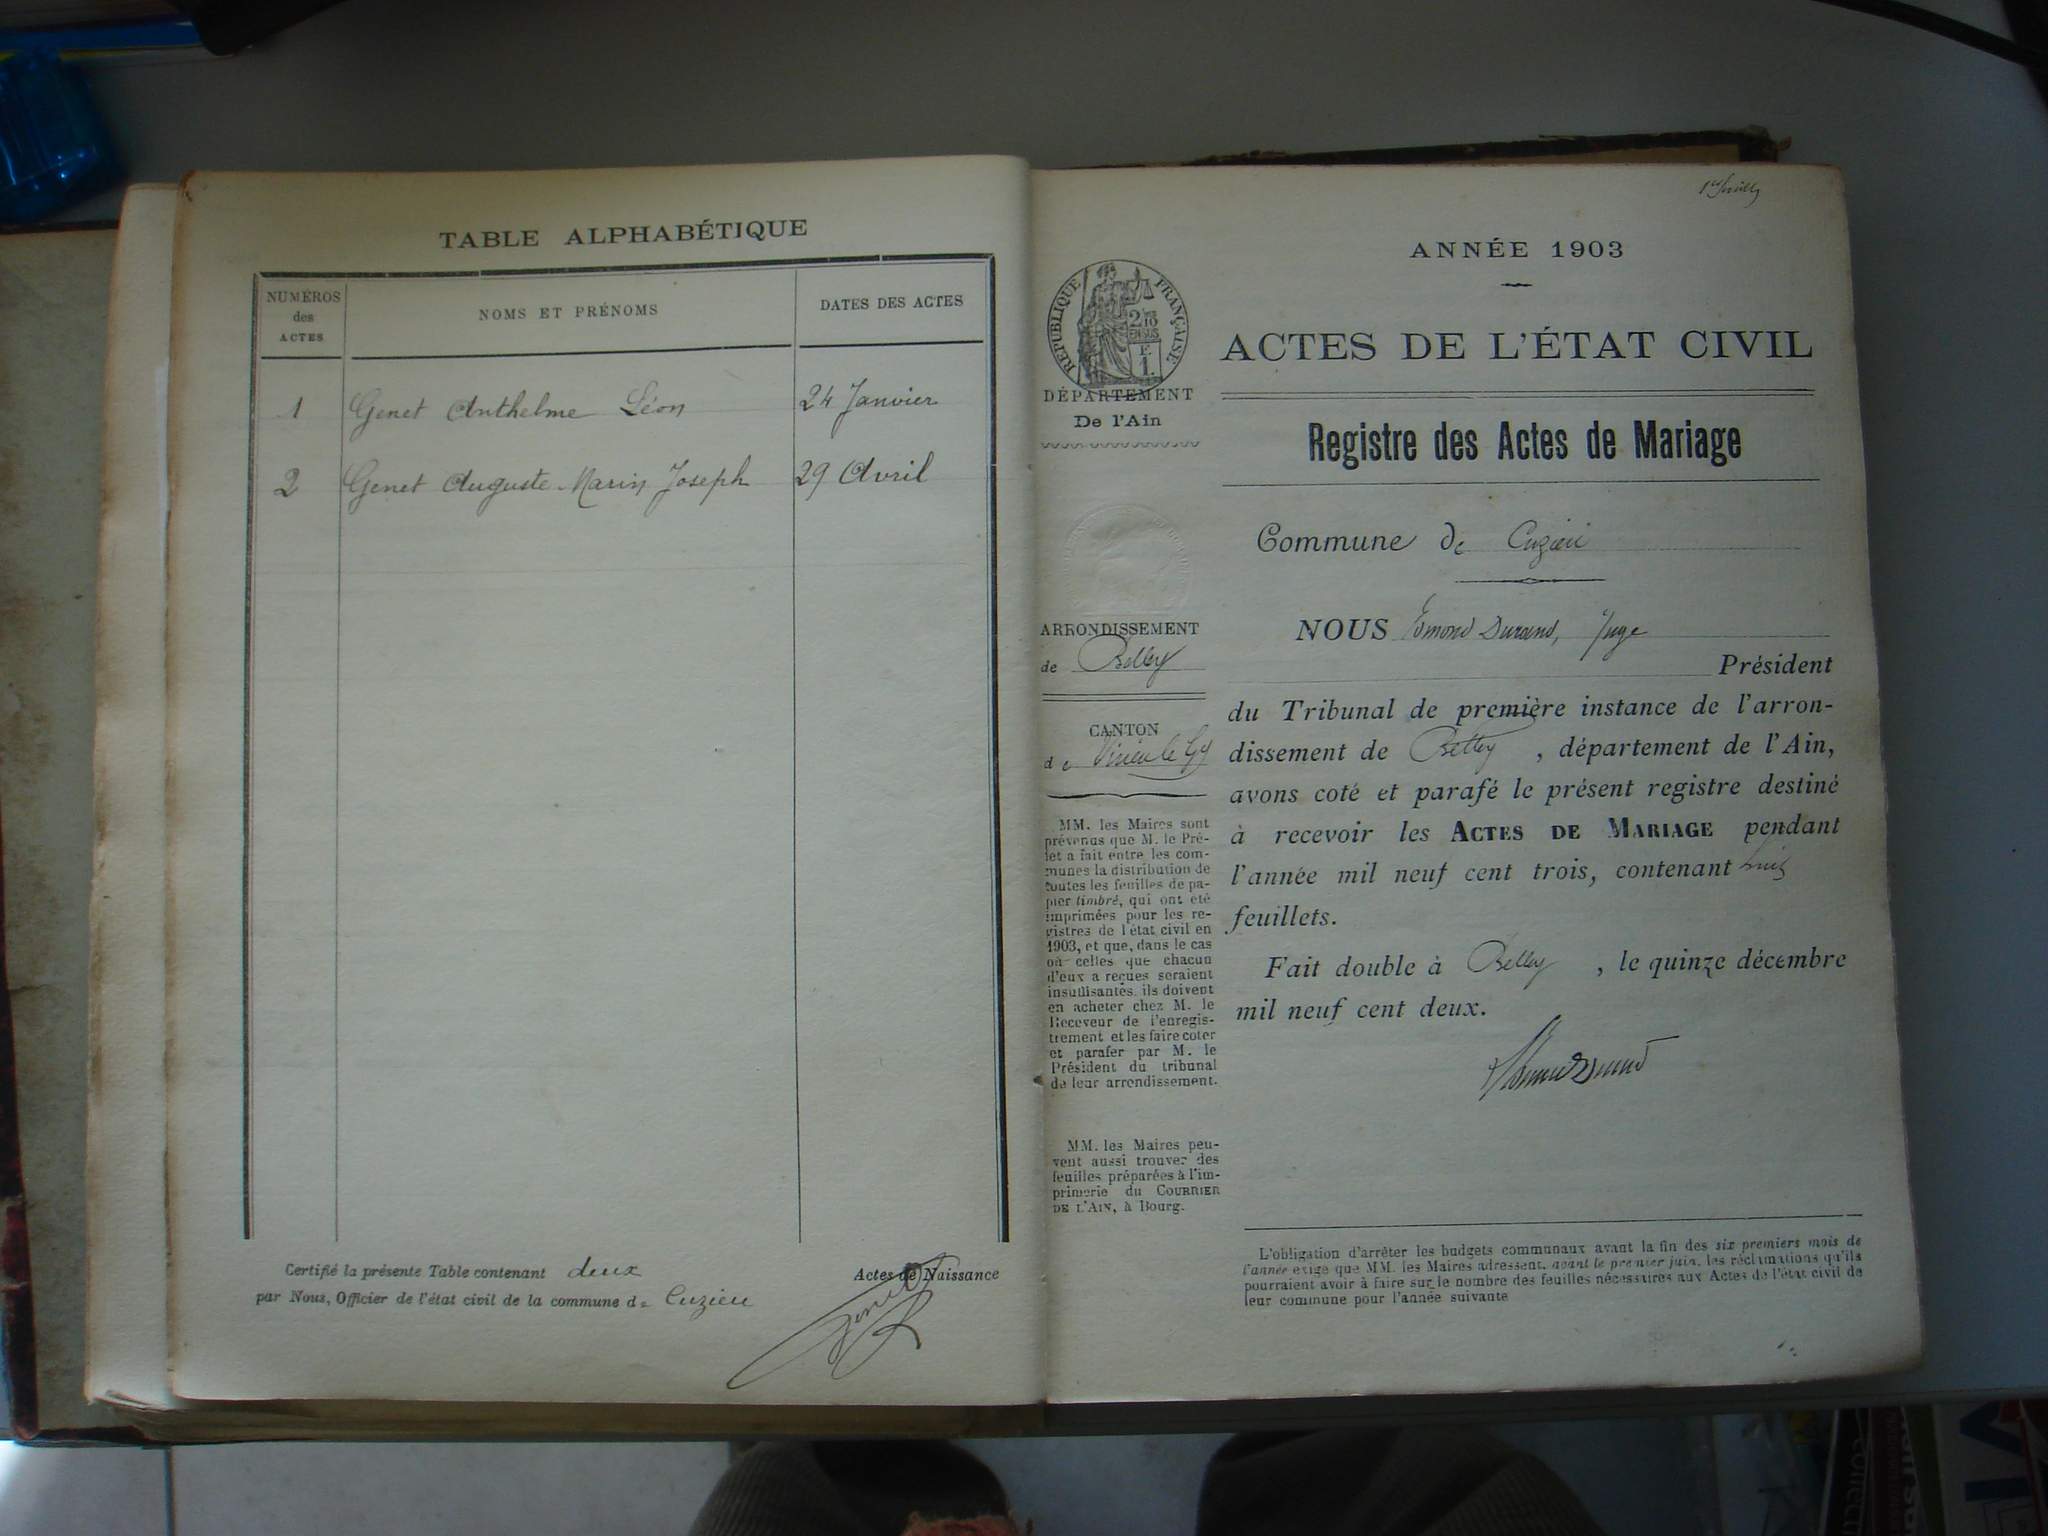 TABLE ALPHABÉTIQUE
NUMÉROS
des
ACTES
NOMS ET PRÉNOMS
DATES DES ACTES
1 Genet Anthelme Léon 24 Janvier
2 Genet Auguste Marin Joseph 29 Avril
Certifié la présente Table contenant deux Actes de Naissance
par Nous, Officier de l'état civil de la commune de Cuzieu
Genet
ANNÉE 1903
ACTES DE L'ÉTAT CIVIL
RÉPUBLIQUE FRANÇAISE
DÉPARTEMENT
De l'Ain
Registre des Actes de Mariage
Commune de Cuzieu
ARRONDISSEMENT
de Belley
CANTON
de Virieu le Gd
MM. les Maires sont
prévenus que M. le Pré-
fet a fait entre les com-
munes la distribution de
toutes les feuilles de pa-
pier timbré, qui ont été
imprimées pour les re-
gistres de l'état civil en
1903, et que, dans le cas
où celles que chacun
d'eux a reçues seraient
insuffisantes, ils doivent
en acheter chez M. le
Receveur de l'enregis-
trement et les faire coter
et parafer par M. le
Président du tribunal
de leur arrondissement.
MM. les Maires peu-
vent aussi trouver des
feuilles préparées à l'im-
primerie du COURRIER
DE L'AIN, à Bourg.
NOUS Edmond Durand, Juge
Président
du Tribunal de première instance de l'arron-
dissement de Belley, département de l'Ain,
avons coté et parafé le présent registre destiné
à recevoir les ACTES DE MARIAGE pendant
l'année mil neuf cent trois, contenant huit
feuillets.
Fait double à Belley, le quinze décembre
mil neuf cent deux.
L'obligation d'arrêter les budgets communaux avant la fin des six premiers mois de
l'année exige que MM. les Maires adressent, avant le premier juin, les réclamations qu'ils
pourraient avoir à faire sur le nombre des feuilles nécessaires aux Actes de l'état civil de
leur commune pour l'année suivante